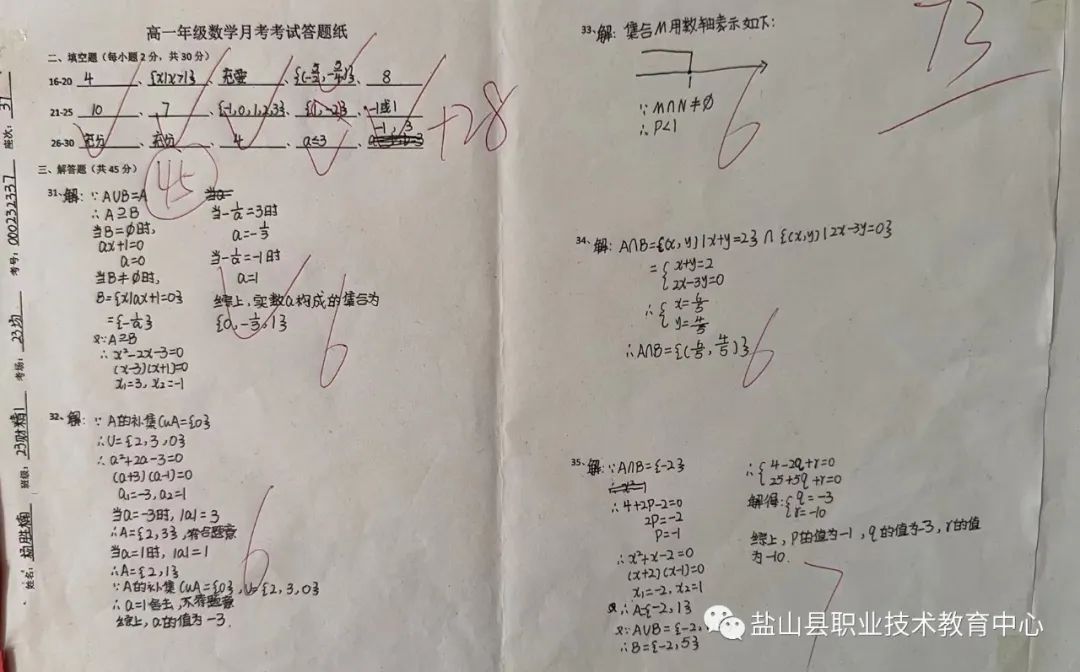 高一年级数学月考考试答题纸
二、填空题（每小题2分，共30分）
16-20 4 、{x|x>1}、充要、、8
21-25 10 、7 、{-1,0,1,2,3}、、-1或1
26-30 充分、充分、4 、a≤3 、-1，3
+28
三、解答题（共45分）
45
31、解：∵A∪B=A
∴A⊇B
当B=∅时，
ax+1=0
a=0
当B≠∅时，
B={x|ax+1=0}
={-1/a}
又∵A⊇B
∴x²-2x-3=0
(x-3)(x+1)=0
x₁=3，x₂=-1
当-1/a=3时
a=-1/3
当-1/a=-1时
a=1
综上，实数a构成的集合为
{0，-1/3，1}
6
32、解：∵A的补集CuA={0}
∴U={2，3，0}
∴a²+2a-3=0
(a+3)(a-1)=0
a₁=-3，a₂=1
当a=-3时，|a|=3
∴A={2，3}，符合题意
当a=1时，|a|=1
∴A={2，1}
∵A的补集CuA={0}，U={2，3，0}
∴a=1舍去，不符题意
综上，a的值为-3.
6
73
33、解：集合M用数轴表示如下：
∵M∩N≠∅
∴P<1
6
34、解：A∩B={(x，y)|x+y=2}∩{(x,y)|2x-3y=0}
={x+y=2
2x-3y=0
∴{x=6/5
y=4/5
∴A∩B={(6/5，4/5)}
6
35、解：∵A∩B={-2}
∴4+2P-2=0
2P=-2
P=-1
∴x²+x-2=0
(x+2)(x-1)=0
x₁=-2，x₂=1
∴A={-2，1}
又∵A∪B={-2，
∴B={-2，5}
∴{4-2q+r=0
25+5q+r=0
解得：{q=-3
r=-10
综上，P的值为-1，q的值为-3，r的值
为-10.
7
姓名：
班级：23财精1
考场：23场
考号：000232337
座次：37
盐山县职业技术教育中心